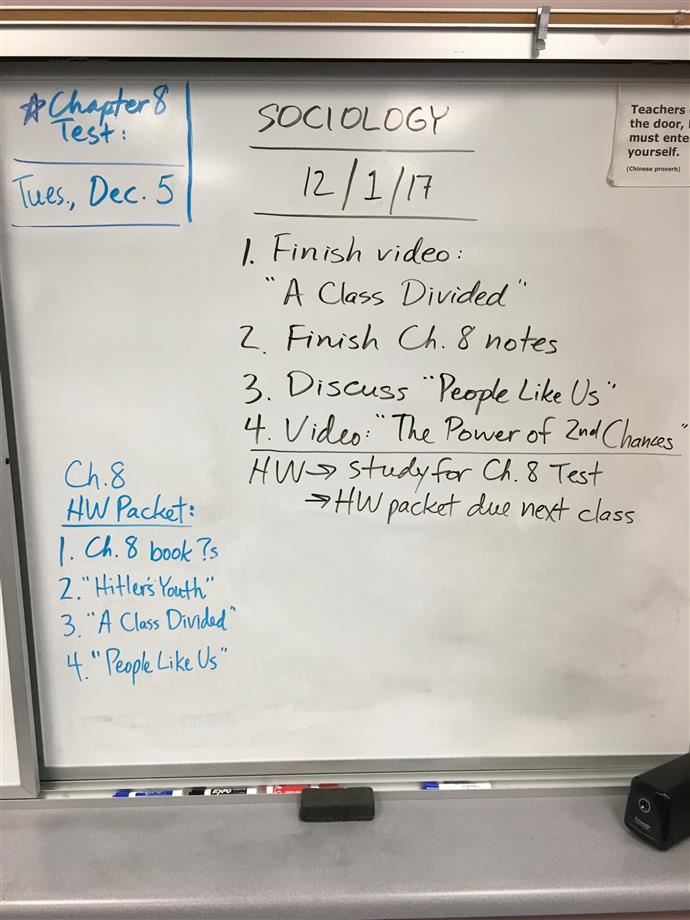 ☆Chapter 8
Test:
Tues., Dec. 5
SOCIOLOGY
12/1/17
1. Finish video:
"A Class Divided"
2. Finish Ch. 8 notes
3. Discuss "People Like Us"
4. Video: "The Power of 2nd Chances"
HW→ Study for Ch. 8 Test
→HW packet due next class
Ch. 8
HW Packet:
1. Ch. 8 book ?s
2. "Hitler's Youth"
3. "A Class Divided"
4. "People Like Us"
Teachers
the door,
must ente
yourself.
(Chinese proverb)
EXPO